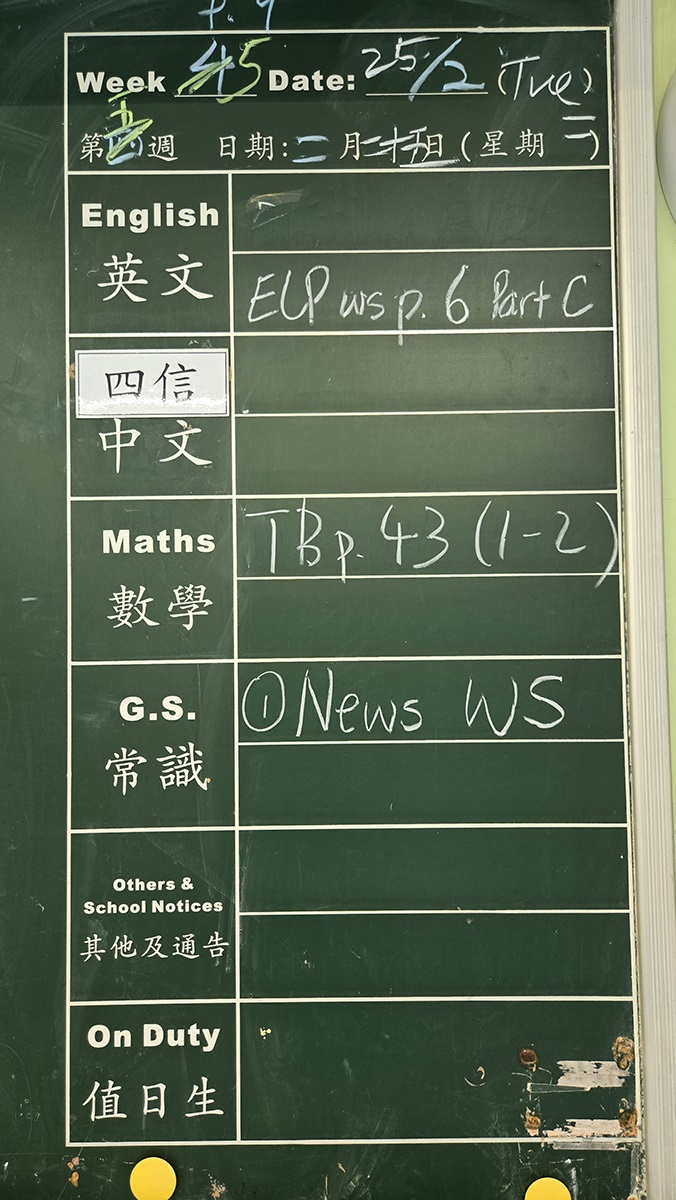 p. 9
Week 5 Date: 25/2 (Tue)
第五週 日期:二月二十五日(星期二)
English
英文
ELP ws p. 6 Part C
四信
中文
Maths
數學
TB p. 43 (1-2)
G.S.
常識
① News WS
Others &
School Notices
其他及通告
On Duty
值日生